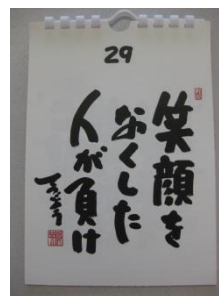 29
笑顔を
なくした
人が負け